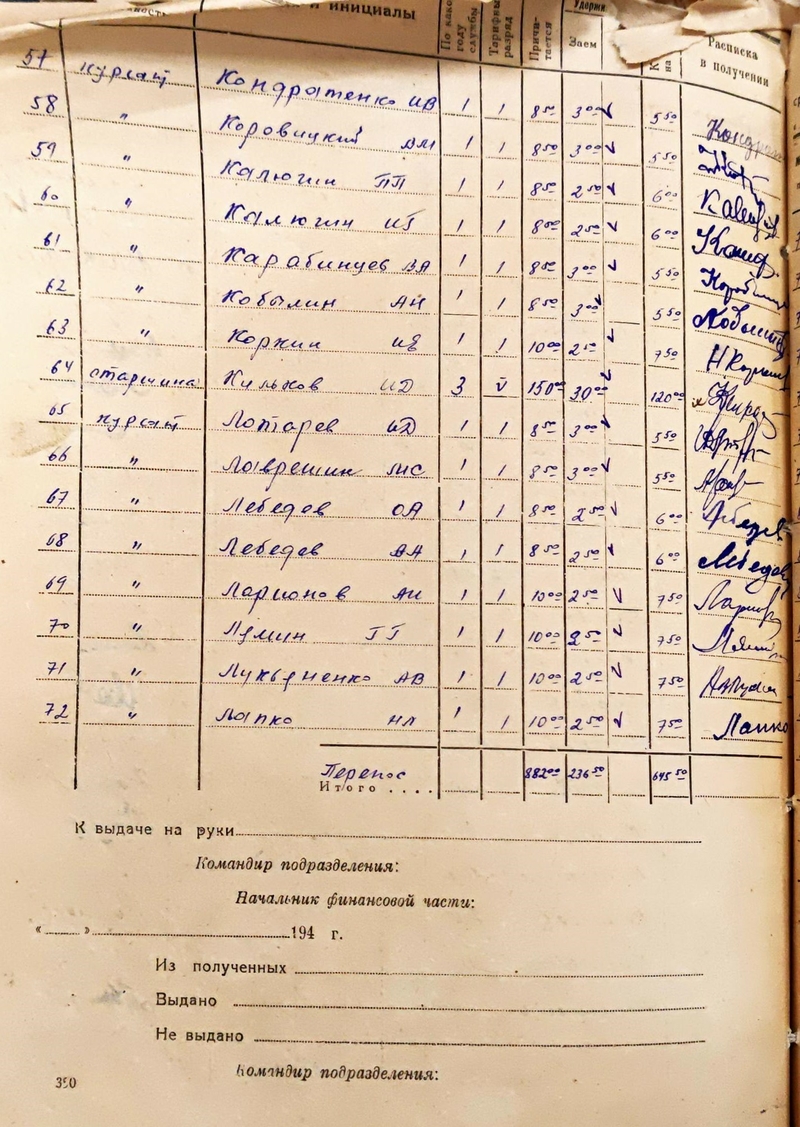 и инициалы
По како
году
службы
Тарифны
разряд
Прича-
тается
Удержи
Заем
К
на
Расписка
в получении
57 курсант Кондратенко ИВ 1 1 8 50 3 00 √ 5 50
58 " Коровицкий ВМ 1 1 8 50 3 00 √ 5 50
59 " Калюгин ПП 1 1 8 50 2 50 √ 6 00
60 " Калюгин ИГ 1 1 8 50 2 50 √ 6 00
61 " Карабинцев ВА 1 1 8 50 3 00 √ 5 50
62 " Кобылин АН 1 1 8 50 3 00 √ 5 50
63 " Коржин ИЕ 1 1 10 00 2 50 √ 7 50
64 старшина Кильков ИД 3 V 150 00 30 00 √ 120 00
65 курсант Лотарев ИД 1 1 8 50 3 00 √ 5 50
66 " Лаврешин МС 1 1 8 50 3 00 √ 5 50
67 " Лебедев ОА 1 1 8 50 2 50 √ 6 00
68 " Лебедев ВА 1 1 8 50 2 50 √ 6 00 Лебедев
69 " Ларионов АИ 1 1 10 00 2 50 √ 7 50
70 " Лямин ГГ 1 1 10 00 2 50 √ 7 50
71 " Лукьяненко АВ 1 1 10 00 2 50 √ 7 50
72 " Лапко НЛ 1 1 10 00 2 50 √ 7 50 Лапко
Перенос 882 00 236 50 645 50
Итого . . . .
К выдаче на руки
Командир подразделения:
Начальник финансовой части:
« » 194 г.
Из полученных
Выдано
Не выдано
Командир подразделения:
390